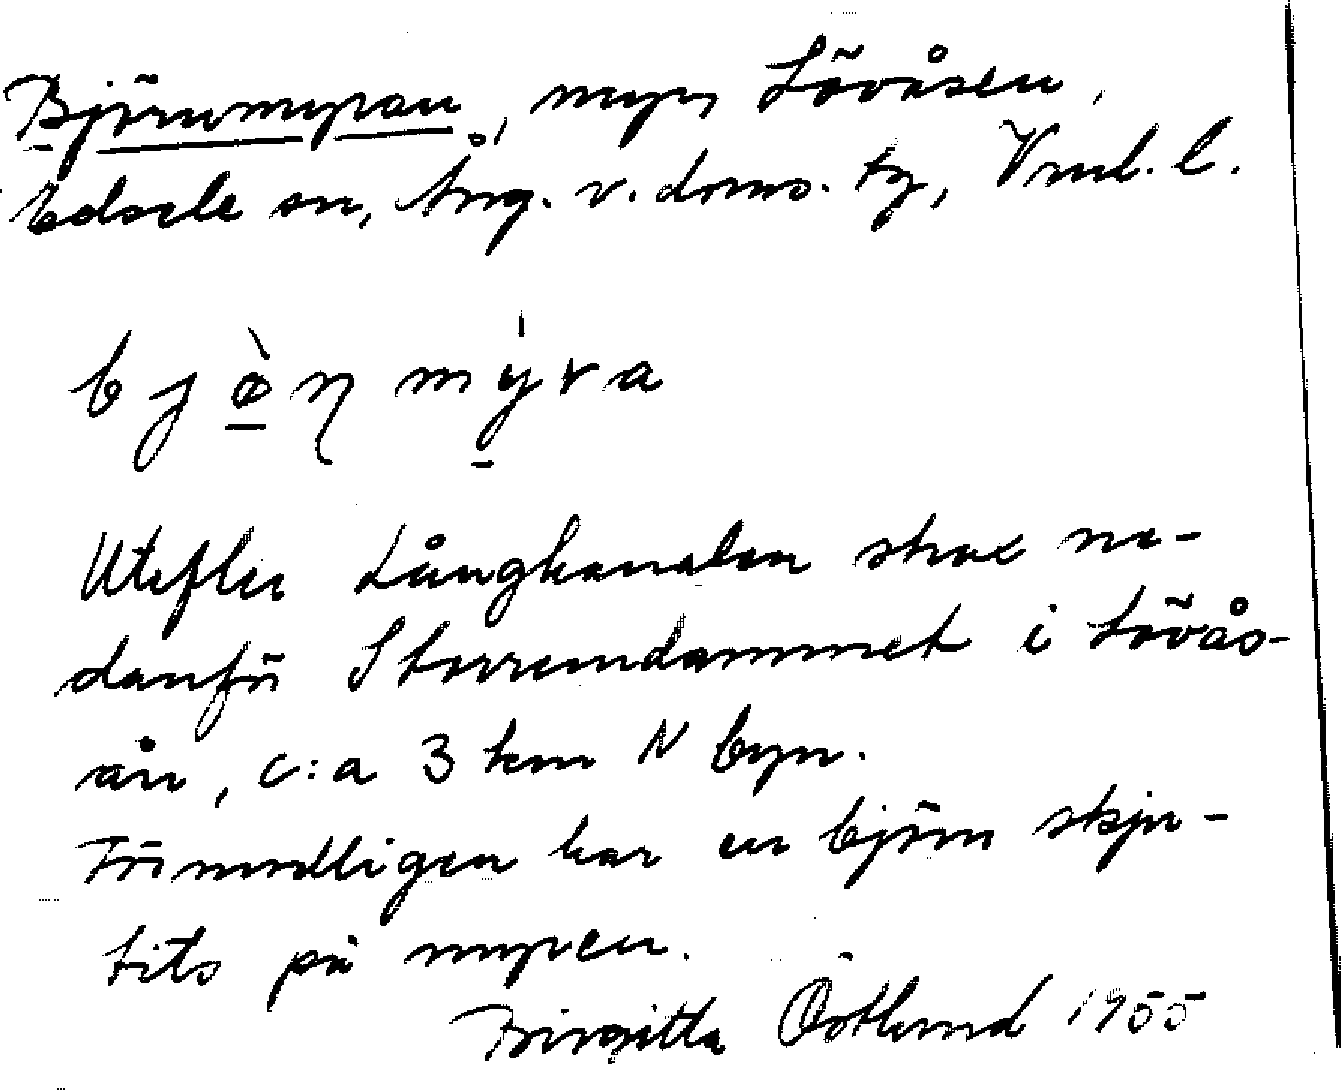 Björnmyran, myr, Lövåsen,
Edsele sn, Ång. v. doms. tg, Vnl. l.
bjø̀ṇmýra
Utefter Långkanalen strax ne-
danför Storremdammet i Lövås-
ån, c:a 3 km N byn.
Förmodligen har en björn skju-
tits på myren.
Birgitta Östlund 1955